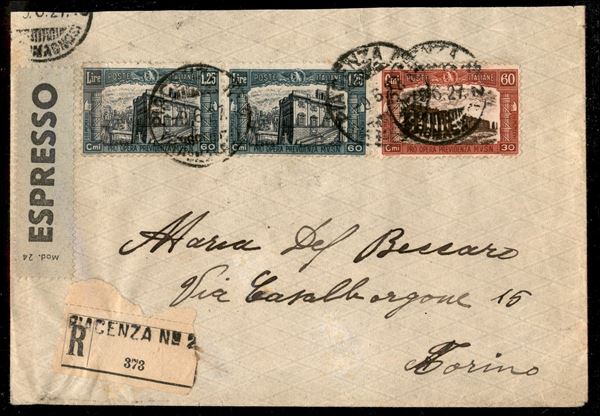 5.6.27.
ESPRESSO
Mod. 24
Lire POSTE ITALIANE 1,25
Cmi PRO OPERA PREVIDENZA M.V.S.N. 60
Lire POSTE ITALIANE 1,25
Cmi PRO OPERA PREVIDENZA M.V.S.N. 60
Cmi POSTE ITALIANE 60
Cmi PRO OPERA PREVIDENZA M.V.S.N. 30
Maria Del Bessaro
Via Casalborgone 15
Torino
R PIACENZA No 2
373